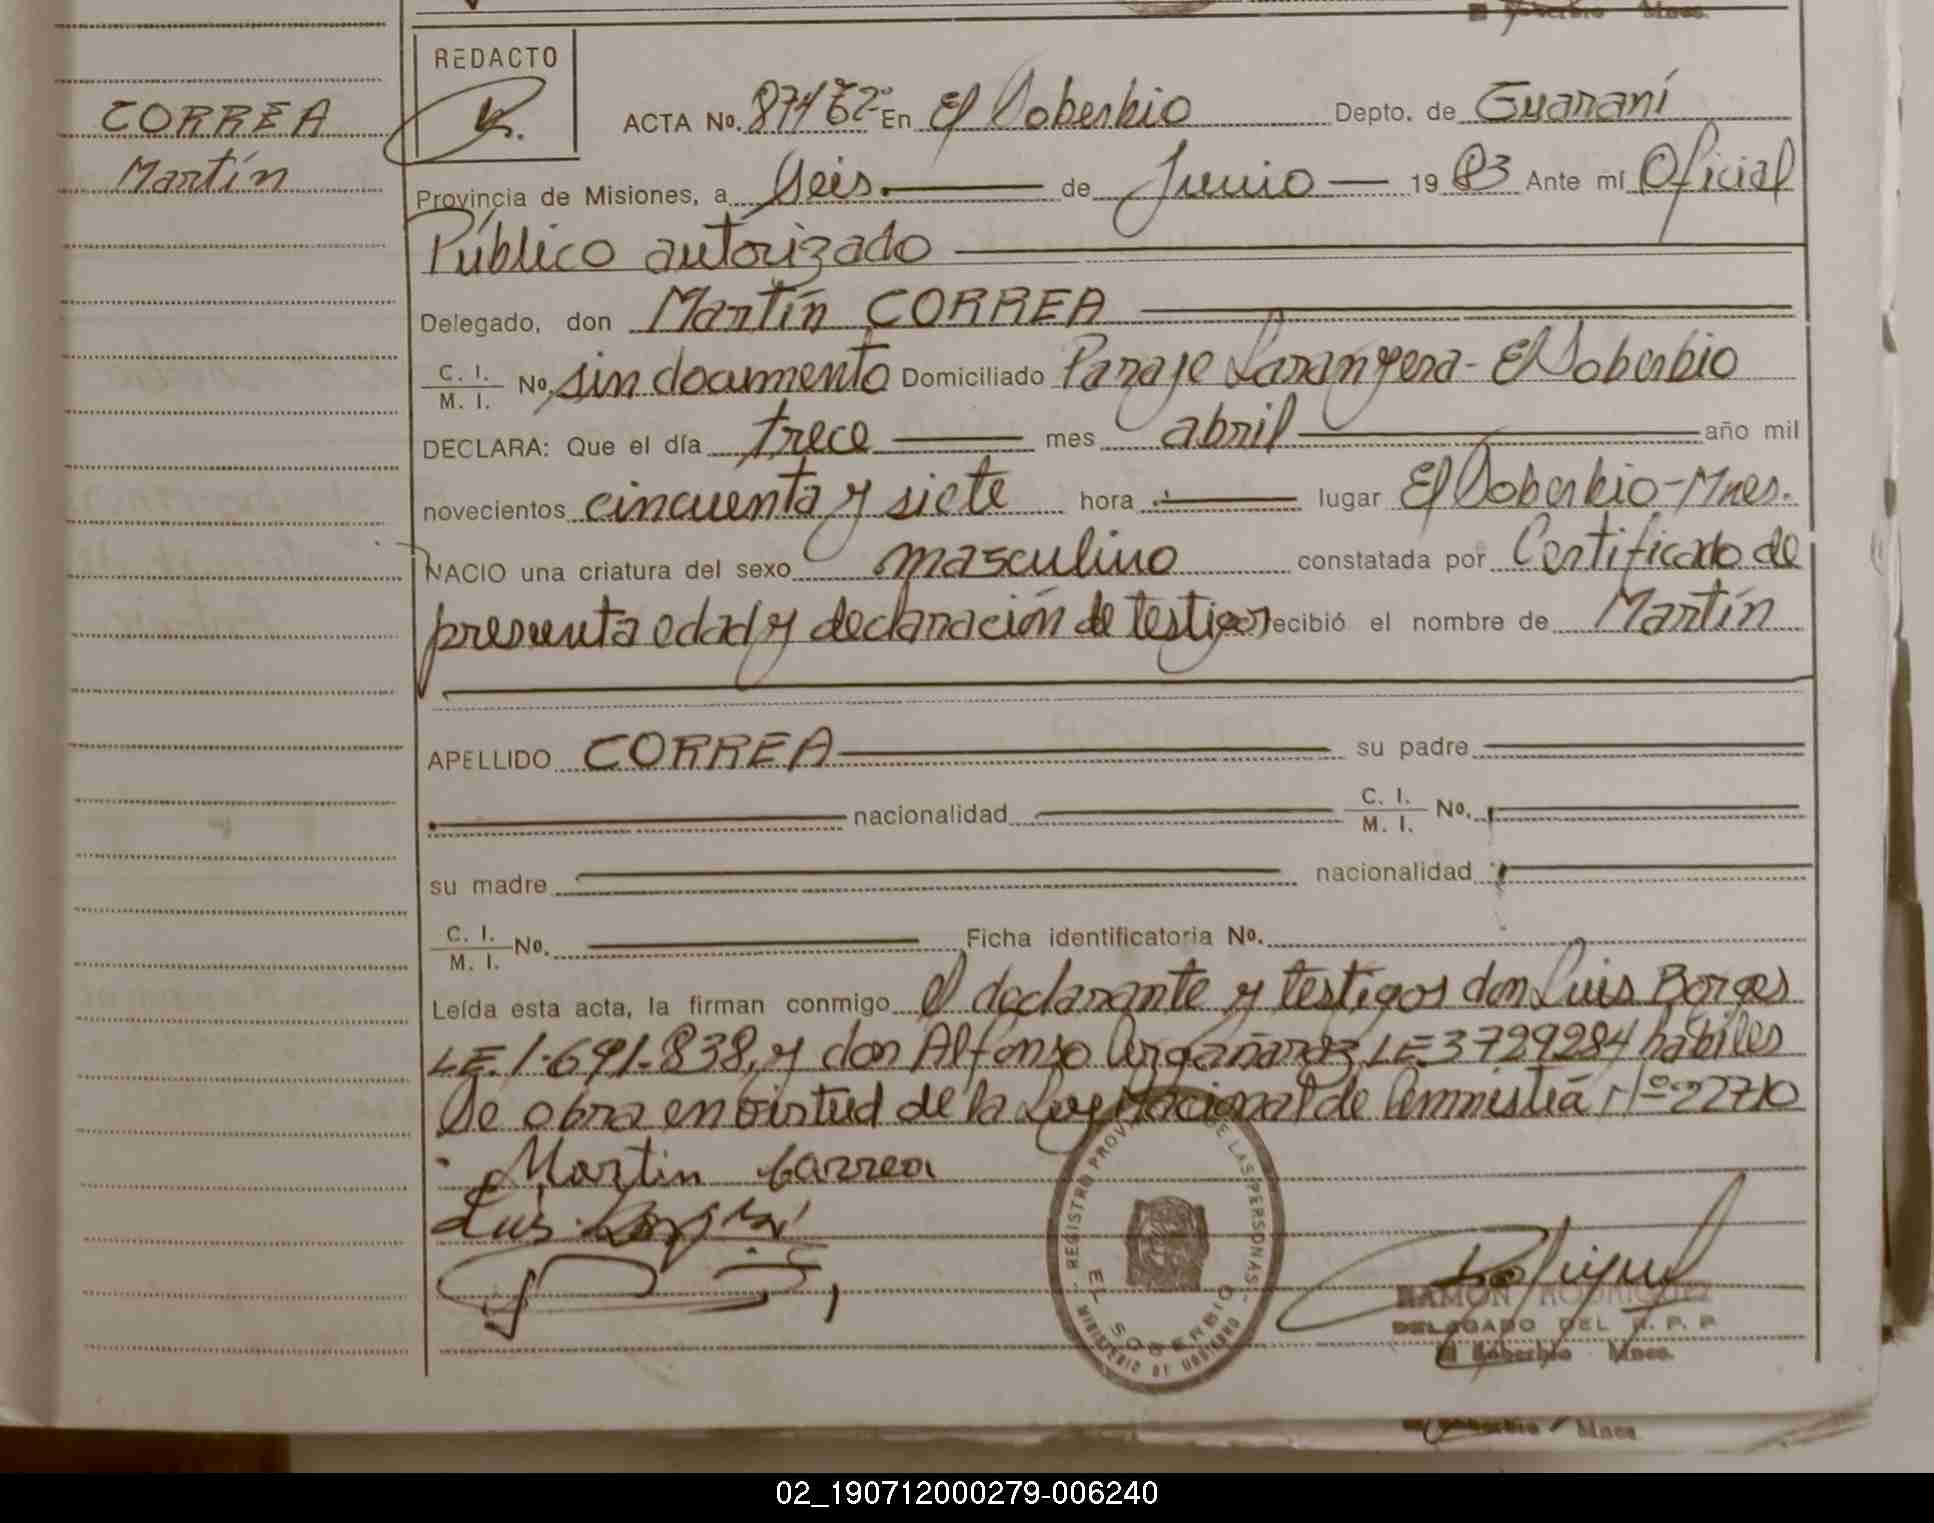 REDACTO
CORREA
Martín
ACTA No. 874 Tº 2º En El Soberbio Depto. de Guaraní
Provincia de Misiones, a Seis de Junio 19 83 Ante mí Oficial
Público autorizado
Delegado, don Martín CORREA
C. I.
M. I. No. sin documento Domiciliado Paraje Laranyera - El Soberbio
DECLARA: Que el día trece mes abril año mil
novecientos cincuenta y siete hora lugar El Soberbio - Mnes.
NACIO una criatura del sexo masculino constatada por Certificado de
presunta edad y declaración de testigos recibió el nombre de Martín
APELLIDO CORREA su padre
nacionalidad C. I.
M. I. No.
su madre nacionalidad
C. I.
M. I. No. Ficha identificatoria No.
Leída esta acta, la firman conmigo el declarante y testigos don Luis Borges
LE. 1.691.838, y don Alfonso Argañaraz LE 3729284 hábiles
Se obra en virtud de la Ley Nacional de Amnistía Nº 22710
Martin Carrea
Luis
REGISTRO PROVINCIAL DE LAS PERSONAS
EL SOBERBIO
MINISTERIO DE GOBIERNO
RAMON RODRIGUEZ
DELEGADO DEL R. P. P.
El Soberbio Mnes.
Soberbio Mnes
02_190712000279-006240